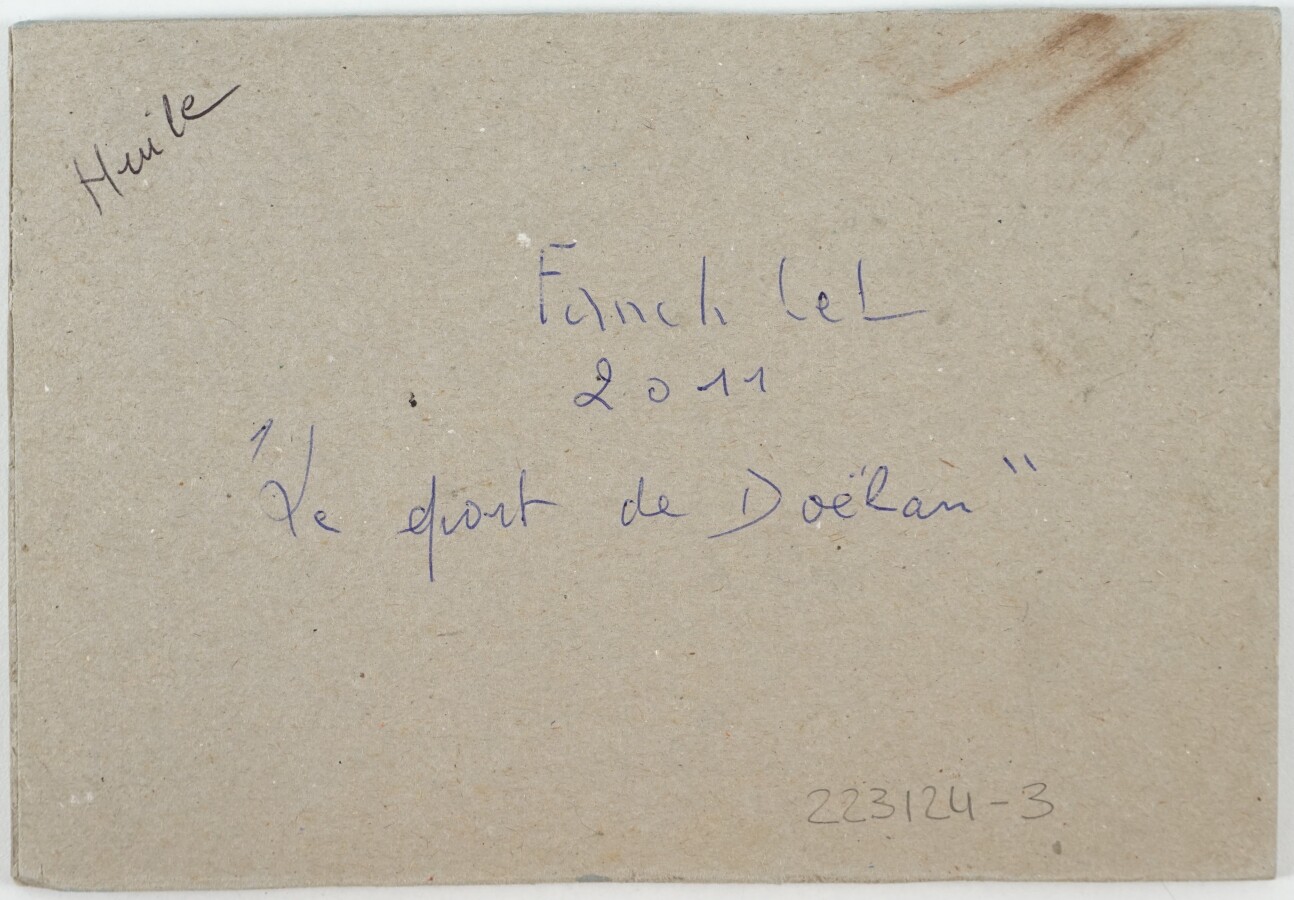 Huile
Fanch Lel
2011
"Le port de Doëlan"
223124-3